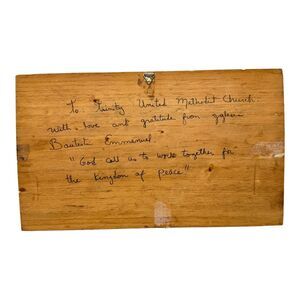 To: Trinity United Methodist Church.
With love and gratitude from
Bautista Emmanuel.
"God call us to work together for
the kingdom of peace"